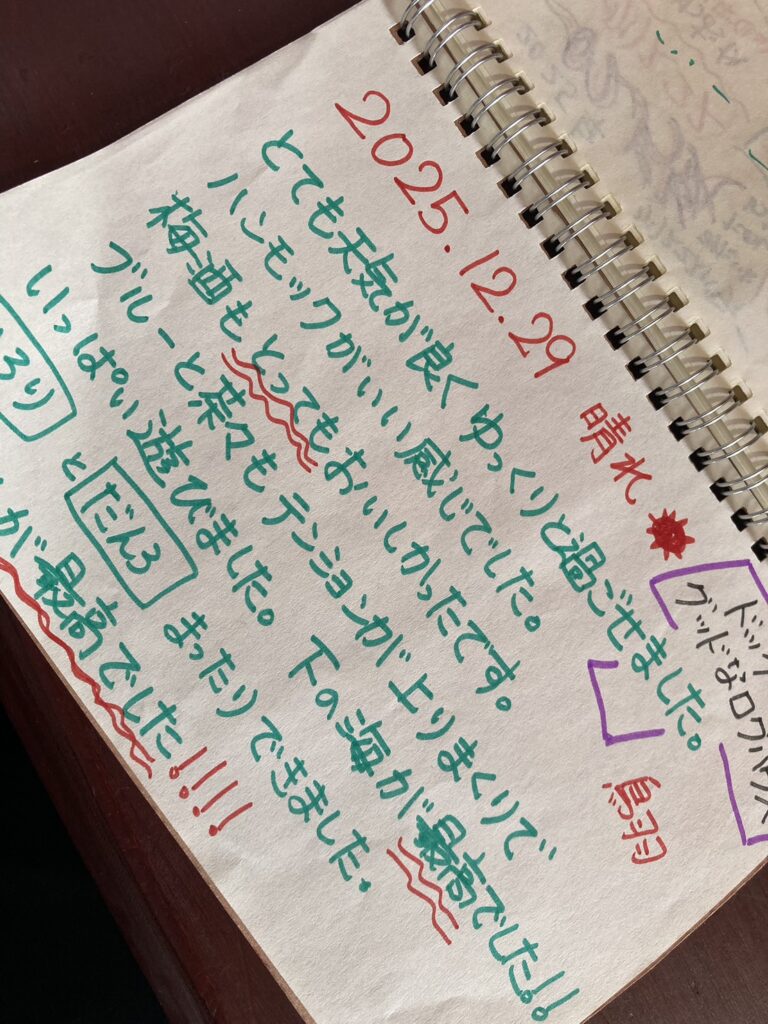 2025.12.29 晴れ
ドッ
グッドなログハウス
鳥羽
とても天気が良くゆっくりと過ごせました。
ハンモックがいい感じでした。
梅酒もとってもおいしかったです。
ブルーと茶々もテンションが上りまくりで、
いっぱい遊びました。下の海が最高でした!!
ろり と だんろ まったりできました。
が最高でした!!!!